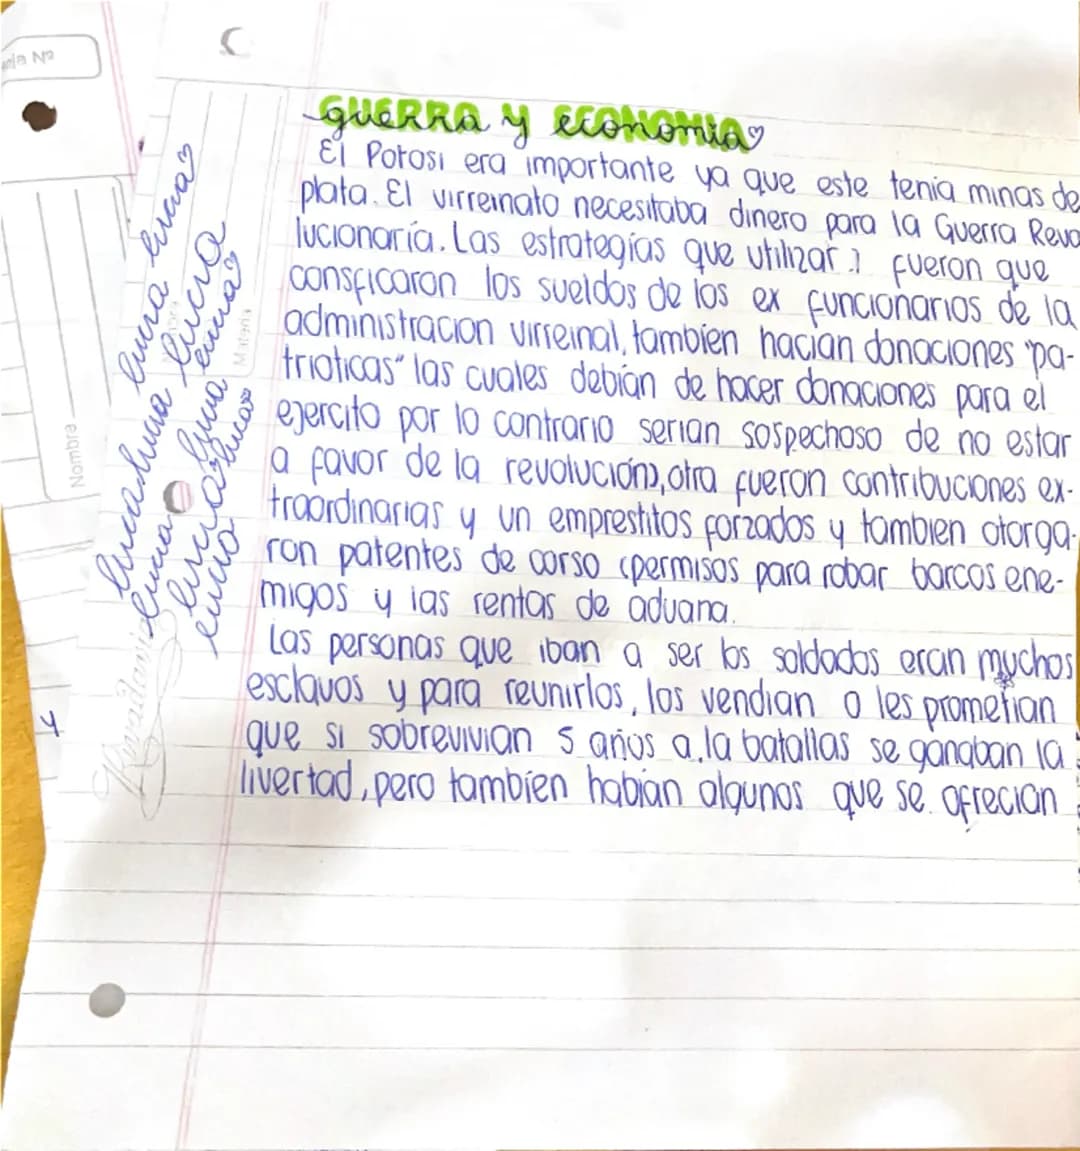 GUERRA y ECONOMIA
El Potosi era importante ya que este tenia minas de
plata. El virreinato necesitaba dinero para la Guerra Revo
lucionaría. Las estrategias que utilizar fueron que
consficaron los sueldos de los ex funcionarios de la
administracion virreinal, tambien hacian donaciones "pa-
trioticas" las cuales debian de hacer donaciones para el
ejercito por lo contrario serian sospechoso de no estar
a favor de la revolución, otra fueron contribuciones ex-
traordinarias y un emprestitos forzados y tambien otorga-
ron patentes de corso (permisos para robar barcos ene-
migos y las rentas de aduana.
Las personas que iban a ser los soldados eran muchos
esclavos y para reunirlos, los vendian o les prometian
que si sobrevivian 5 años a la batallas se ganaban la
livertad, pero tambien habian algunos que se ofrecian
Nombre
Materia
Nº
y